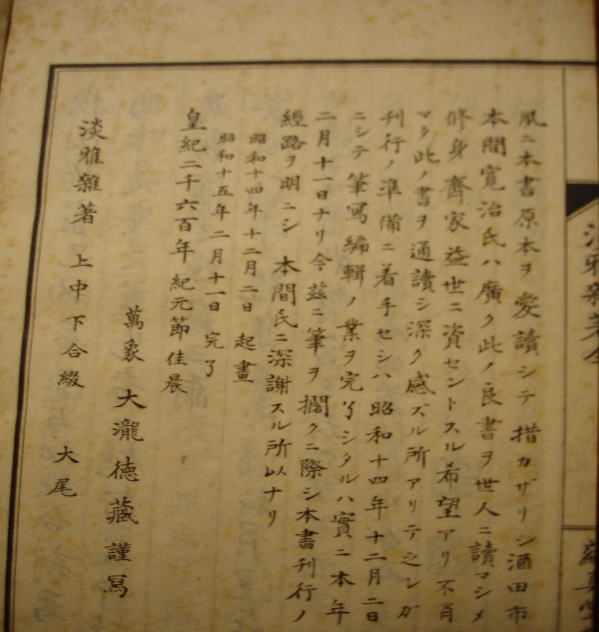 夙ニ本書原本ヲ愛讀シテ措カザリシ酒田市
本間寛治氏ハ廣ク此ノ良書ヲ世人ニ讀マシメ
修身齊家益世ニ資セントスル希望アリ不肖
マタ此ノ書ヲ通讀シ深ク感ズル所アリテ之レガ
刊行ノ準備ニ着手セシハ昭和十四年十二月二日
ニシテ筆寫編輯ノ業ヲ完了シタルハ實ニ本年
二月十一日ナリ今玆ニ筆ヲ擱クニ際シ本書刊行ノ
經路ヲ明ニシ 本間氏ニ深謝スル所以ナリ
昭和十四年十二月二日 起畫
昭和十五年二月十一日 完了
皇紀二千六百年紀元節佳晨
萬象 大瀧德藏謹寫
淡雅雜著 上中下合綴 大尾